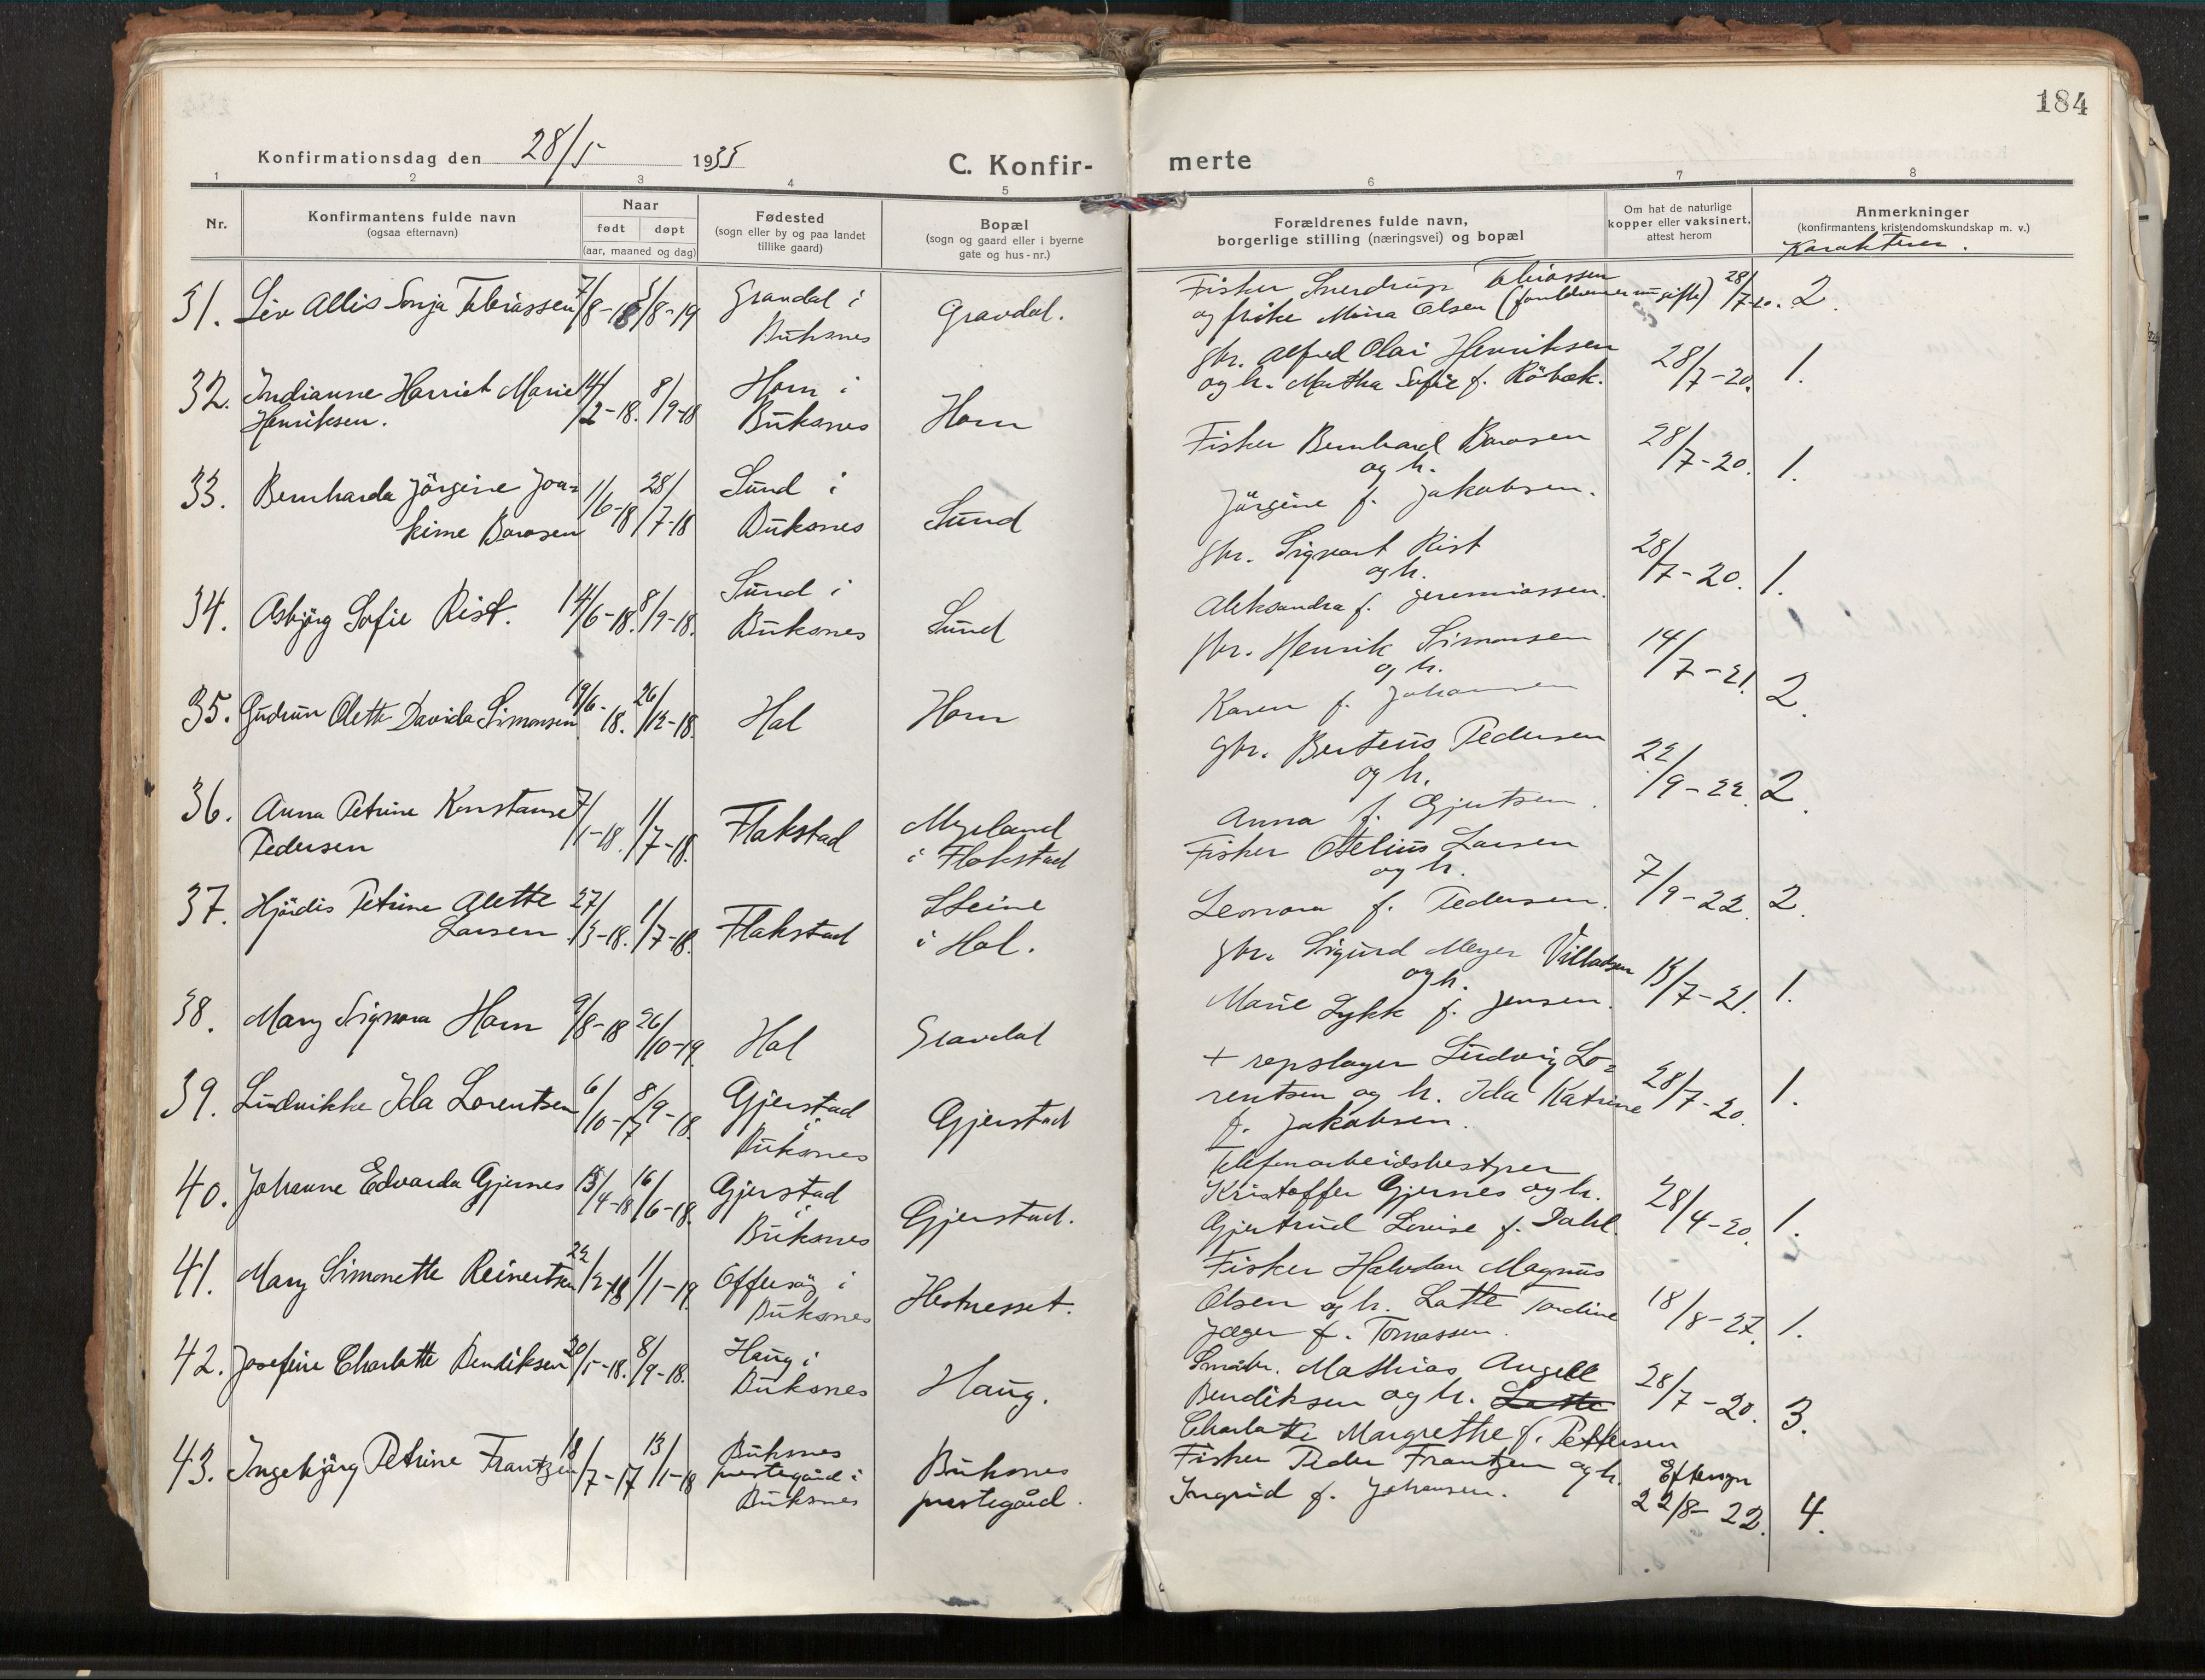 184
Konfirmationsdag den 28/5 1933
C. Konfir-merte
1 2 3 4 5 6 7 8
Nr.
Konfirmantens fulde navn
(ogsaa efternavn)
Naar
født døpt
(aar, maaned og dag)
Fødested
(sogn eller by og paa landet
tillike gaard)
Bopæl
(sogn og gaard eller i byerne
gate og hus-nr.)
Forældrenes fulde navn,
borgerlige stilling (næringsvei) og bopæl
Om hat de naturlige
kopper eller vaksinert,
attest herom
Anmerkninger
(konfirmantens kristendomskundskap m. v.)
Karakterer.
31. Liv Allis Sonja Tobiassen 7/8-18 3/8-19 Gravdal i
Buksnes
Gravdal.
Fisker Sverdrup Tobiassen
og frøke Mina Olsen (foreldrene ugifte) 28/7-20. 2.
32. Indianne Harriet Marie
Henriksen. 14/2-18. 8/9-18 Horn i
Buksnes
Horn
gbr. Alfred Olai Henriksen
og h. Martha Sofie f. Röbæk. 28/7-20. 1.
33. Bernharda Jörgine Joa=
kime Barosen 1/6-18 28/7-18 Sund i
Buksnes
Sund
Fisker Bernhard Barosen
og h.
Jörgine f. Jakobsen. 28/7-20. 1.
34. Asbjörg Sofie Rist. 14/6-18. 8/9-18. Sund i
Buksnes
Sund
gbr. Sigvart Rist
og h.
Aleksandra f. Jeremiassen. 28/7-20. 1.
35. Gudrun Olette Davida Simonsen 19/6-18. 26/12-18. Hol
Horn
gbr. Henrik Simonsen
og h.
Karen f. Johansen 14/7-21. 2.
36. Anna Petrine Konstanse
Pedersen 7/1-18. 1/7-18. Flakstad
Myrland
i Flakstad
gbr. Berteus Pedersen
og h.
Anna f. Gjertsen. 22/9-22. 2.
37. Hjördis Petrine Alette
Larsen 27/3-18. 1/7-18. Flakstad
Steine
i Hol.
Fisker Otelius Larsen
og h.
Leonora f. Pedersen. 7/9-22. 2.
38. Mary Signora Horn 9/8-18 26/10-19. Hol
Gravdal
gbr. Sigurd Meyer Villadsen
og h.
Marie Lykk f. Jensen. 15/7-21. 1.
39. Ludvikke Ida Lorentsen 6/10-17 8/9-18. Gjerstad
i
Buksnes
Gjerstad
+ repslager Ludvig Lo=
rentsen og h. Ida Katrine
f. Jakobsen. 28/7-20. 1.
40. Johanne Edvarda Gjernes 13/4-18 16/6-18. Gjerstad
i
Buksnes
Gjerstad.
Telefonarbeidsbestyrer
Kristoffer Gjernes og h.
Gjertrud Lovise f. Dahl. 28/4-20. 1.
41. Mary Simonette Reinertsen 22/2-18 1/1-19. Offersöy i
Buksnes
Hestnesset.
Fisker Halvdan Magnus
Olsen og h. Lotte Tordine
Jæger f. Tomassen. 18/8-27. 1.
42. Josefine Charlotte Bendiksen 20/5-18. 8/9-18. Haug i
Buksnes
Haug.
Småbr. Mathias Angell
Bendiksen og h. Lotte
Charlotte Margrethe f. Pettersen 28/7-20. 3.
43. Ingebjörg Petrine Frantzen 18/7-17 13/1-18 Buksnes
prestegård i
Buksnes
Buksnes
prestegård.
Fisker Peder Frantzen og h.
Ingrid f. Johansen. Eftersyn
22/8-22. 4.